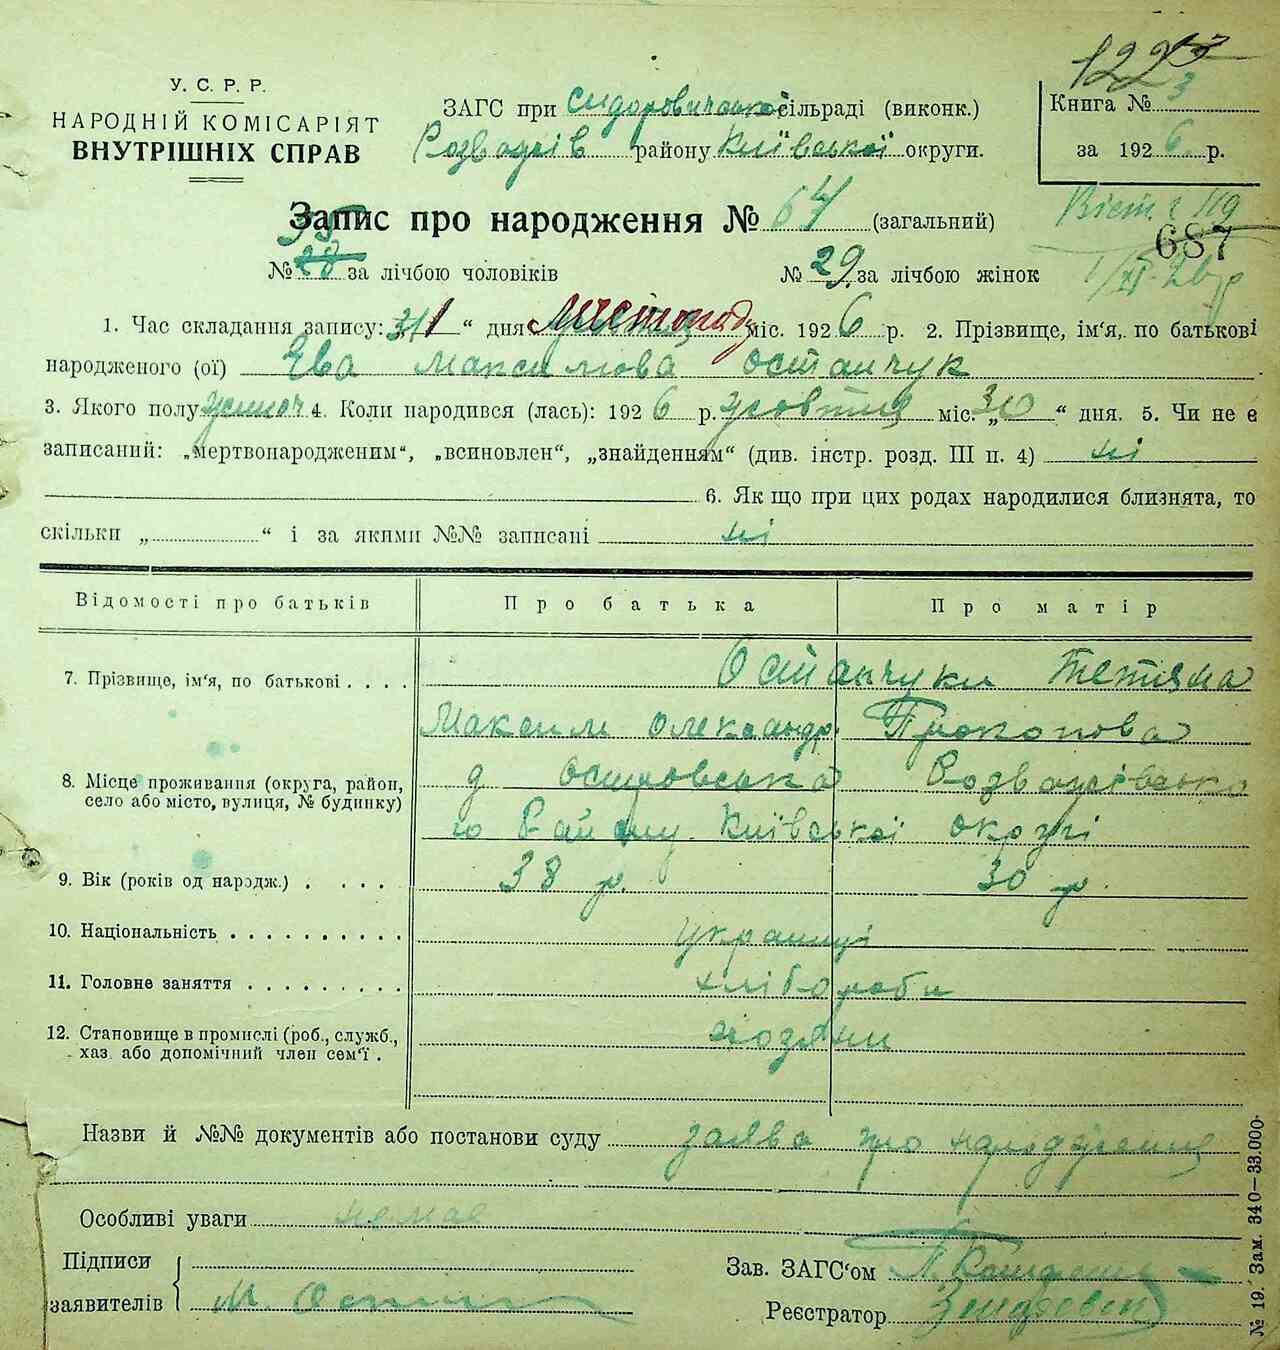 У. С. Р. Р.
НАРОДНІЙ КОМІСАРІЯТ
ВНУТРІШНІХ СПРАВ
ЗАГС при Сидоровичській сільраді (виконк.)
Розважів району Київської округи.
Книга № 3
за 1926 р.
Запис про народження № 64 (загальний)
687
№ 35 28 за лічбою чоловіків № 29 за лічбою жінок
1. Час складання запису: „ 1 “ дня листопаду міс. 1926 р. 2. Прізвище, ім‘я, по батькові
народженого (ої) Ева Максимова Остапчук
3. Якого полу жіноч 4. Коли народився (лась): 1926 р. жовтня міс. „30“ дня. 5. Чи не є
записаний: „мертвонародженим“, „всиновлен“, „знайденням“ (див. інстр. розд. III п. 4) ні
6. Як що при цих родах народилися близнята, то
скільки „ “ і за якими №№ записані ні
Відомості про батьків Про батька Про матір
7. Прізвище, ім‘я, по батькові Остапчуки Тетяна
Максим Олександр. Прокопова
8. Місце проживання (округа, район,
село або місто, вулиця, № будинку)
д Розважівсько
го Району Київської округі
9. Вік (років од народж.) 38 р. 30 р.
10. Національність українці
11. Головне заняття хлібороби
12. Становище в промислі (роб., служб.,
хаз. або допомічний член сем‘ї. хозяни
Назви й №№ документів або постанови суду заява про народження
Особливі уваги немає
Підписи
заявителів М.
Зав. ЗАГС‘ом
Реєстратор
№ 19. Зам. 340—33.000